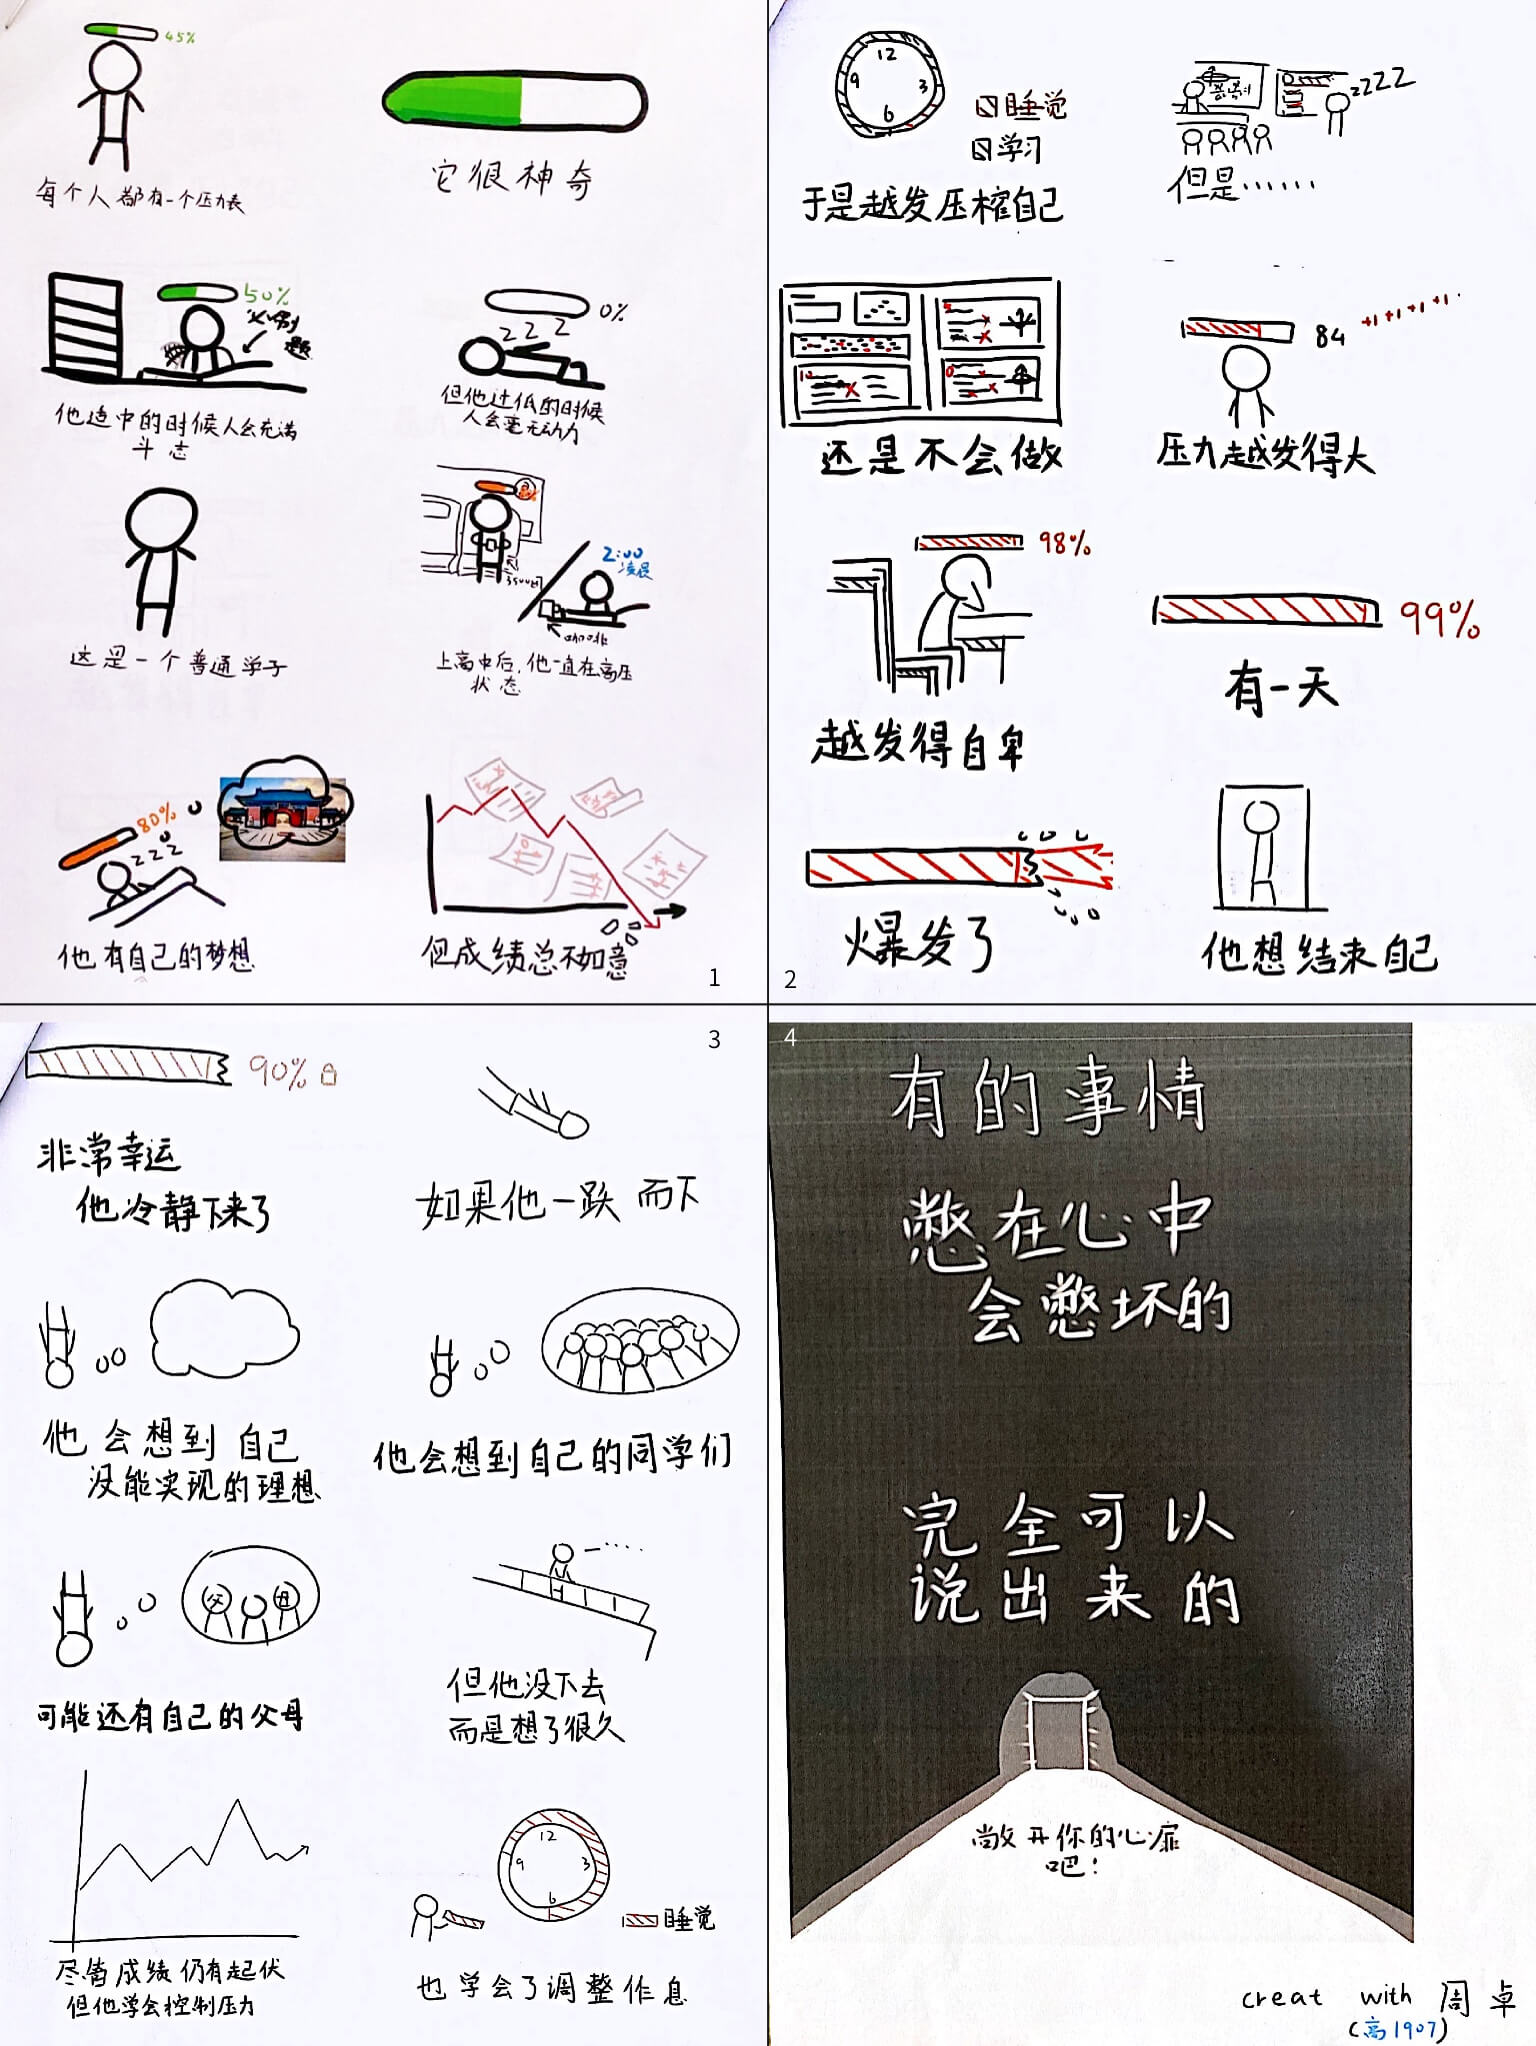 45%
每个人都有一个压力表
它很神奇
50%
他适中的时候人会充满
斗态
0%
z z z
但他过低的时候
人会毫无动力
这是一个普通学子
2:00
凌晨
上高中后,他一直在高压
状态
80%
z z z
他有自己的梦想
但成绩总不如意
1
12
9 3
6
睡觉
学习
于是越发压榨自己
zzzz
但是……
还是不会做
84
+1 +1 +1 +1
压力越发得大
98%
越发得自卑
99%
有一天
爆发了
他想结束自己
2
3
90%
非常幸运
他冷静下来了
如果他一跌而下
他会想到自己
没能实现的理想
他会想到自己的同学们
父 母
可能还有自己的父母
但他没下去
而是想了很久
尽管成绩仍有起伏
但他学会控制压力
12
9 3
6
睡觉
也学会了调整作息
4
有的事情
憋在心中
会憋坏的
完全可以
说出来的
敞开你的心扉
吧!
creat with 周卓
(高1907)